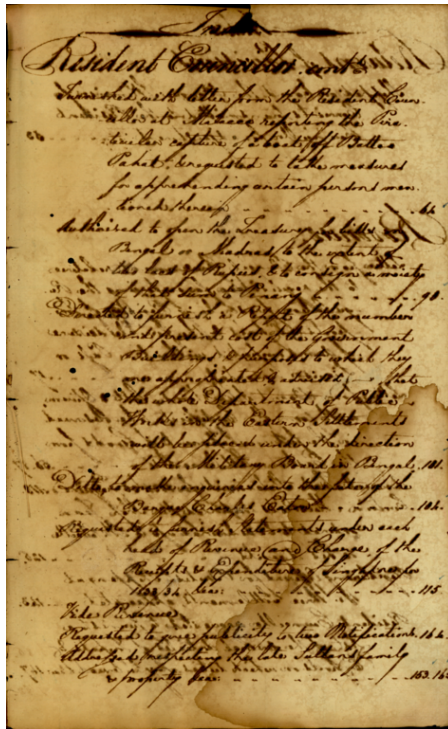 Index
Resident Councillor contd
Furnished with letter from the Resident Coun-
cillor at Malacca reporting the Pira-
tical capture of a boat off Battoo
Pahat & requested to take measures
for apprehending certain persons men-
tioned therein 44
Authorized to open the Treasury for bills on
Bengal or Madras to the extent of
two lacs of Rupees & to consign a moiety
of these funds to Pinang 98
Directed to furnish a Return of the number
and present cost of the Government
Buildings & purposes to which they
are appropriated & advised that
the whole Department of Public
Works in the Eastern Settlements
will be placed under the direction
of the Military Board in Bengal 101.
Ditto, to make enquiries into the
Charles Eaton 104.
Requested to furnish Statements under each
head of Revenue and Charge of the
Receipts & Expenditure of Singapore for
1833/34 115
Vide Revenue
Requested to give publicity to two Notifications 144.
Addressed respecting the late Sultan's family
& property 153.